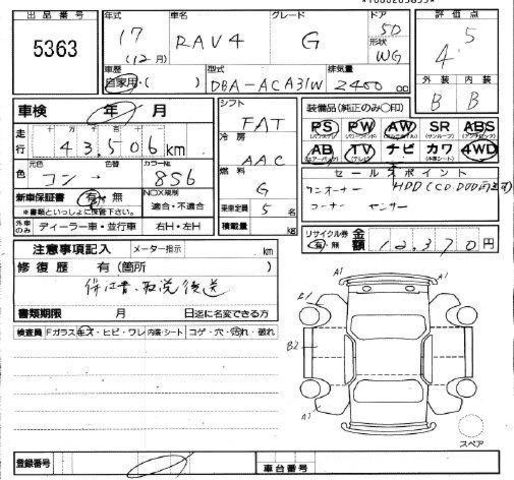 出品番号
5363
年式 車名 グレード ドア 評価点
17 (12月) RAV4 G 5D 4.5
形状
WG
車歴 型式 排気量
自家用・( ) DBA-ACA31W 2400 cc
外装 内装
B B
車検 年 月
シフト
FAT
装備品(純正のみ〇印)
PS PW AW SR ABS
AB TV ナビ カワ 4WD
走行 43,506km
冷房
AAC
元色 色替 カラーNo.
色 コン 856
燃料
G
セールスポイント
ワンオーナー HDD(CD,DVD可)
コーナーセンサー
新車保証書 有・無
※書類といっしょに保管下さい。
NOX規制
適合・不適合
乗車定員 5 名
積載量 kg
外車のみ ディーラー車・並行車 右H・左H
リサイクル券 有 無 金額 12,370円
注意事項記入 メーター指示 km
修復歴 有(箇所 )
保証書、取説後送
書類期限 月 日迄に名変できる方
検査員 Fガラス キズ・ヒビ・ワレ 内装・シート コゲ・穴・汚れ・破れ
A1
A1
B2
A1
スペア
登録番号 車台番号